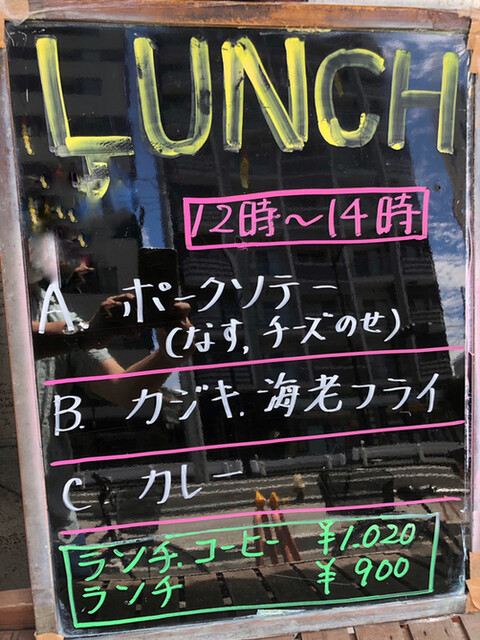 LUNCH
12時〜14時
A. ポークソテー
(なす,チーズのせ)
B. カジキ.海老フライ
C カレー
ランチ.コーヒー ¥1.020
ランチ ¥900